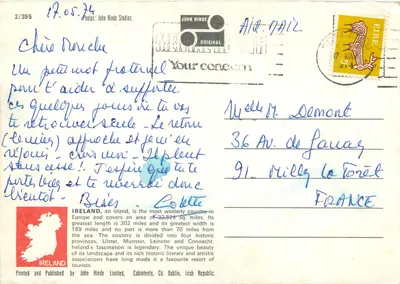 17.05.74
2/395
Photos: John Hinde Studios.
JOHN HINDE
ORIGINAL
AIR-MAIL
EIRE
Your concern
Chère
Un petit mot fraternel
pour t'aider à supporter
ces quelques jours où tu vas
te retrouver seule - Le retour
(dernier) approche et je m'en
réjouis - crois moi - Il pleut
sans cesse!. J'espère que tu te
portes bien et te reverrai donc
bientôt - Bises - Colette
Melle M. Demont
36 Av. de Ganay
91. Milly La Forêt
FRANCE
IRELAND
IRELAND, an island, is the most westerly country in
Europe and covers an area of sq. miles. Its
greatest length is 302 miles and its greatest width is
189 miles and no part is more than 70 miles from
the sea. The country is divided into four historic
provinces, Ulster, Munster, Leinster and Connacht.
Ireland's fascination is legendary. The unique beauty
of its landscape and its rich historic literary and artistic
associations have long made it a favourite resort of
tourists.
Printed and Published by John Hinde Limited, Cabinteely, Co. Dublin, Irish Republic.